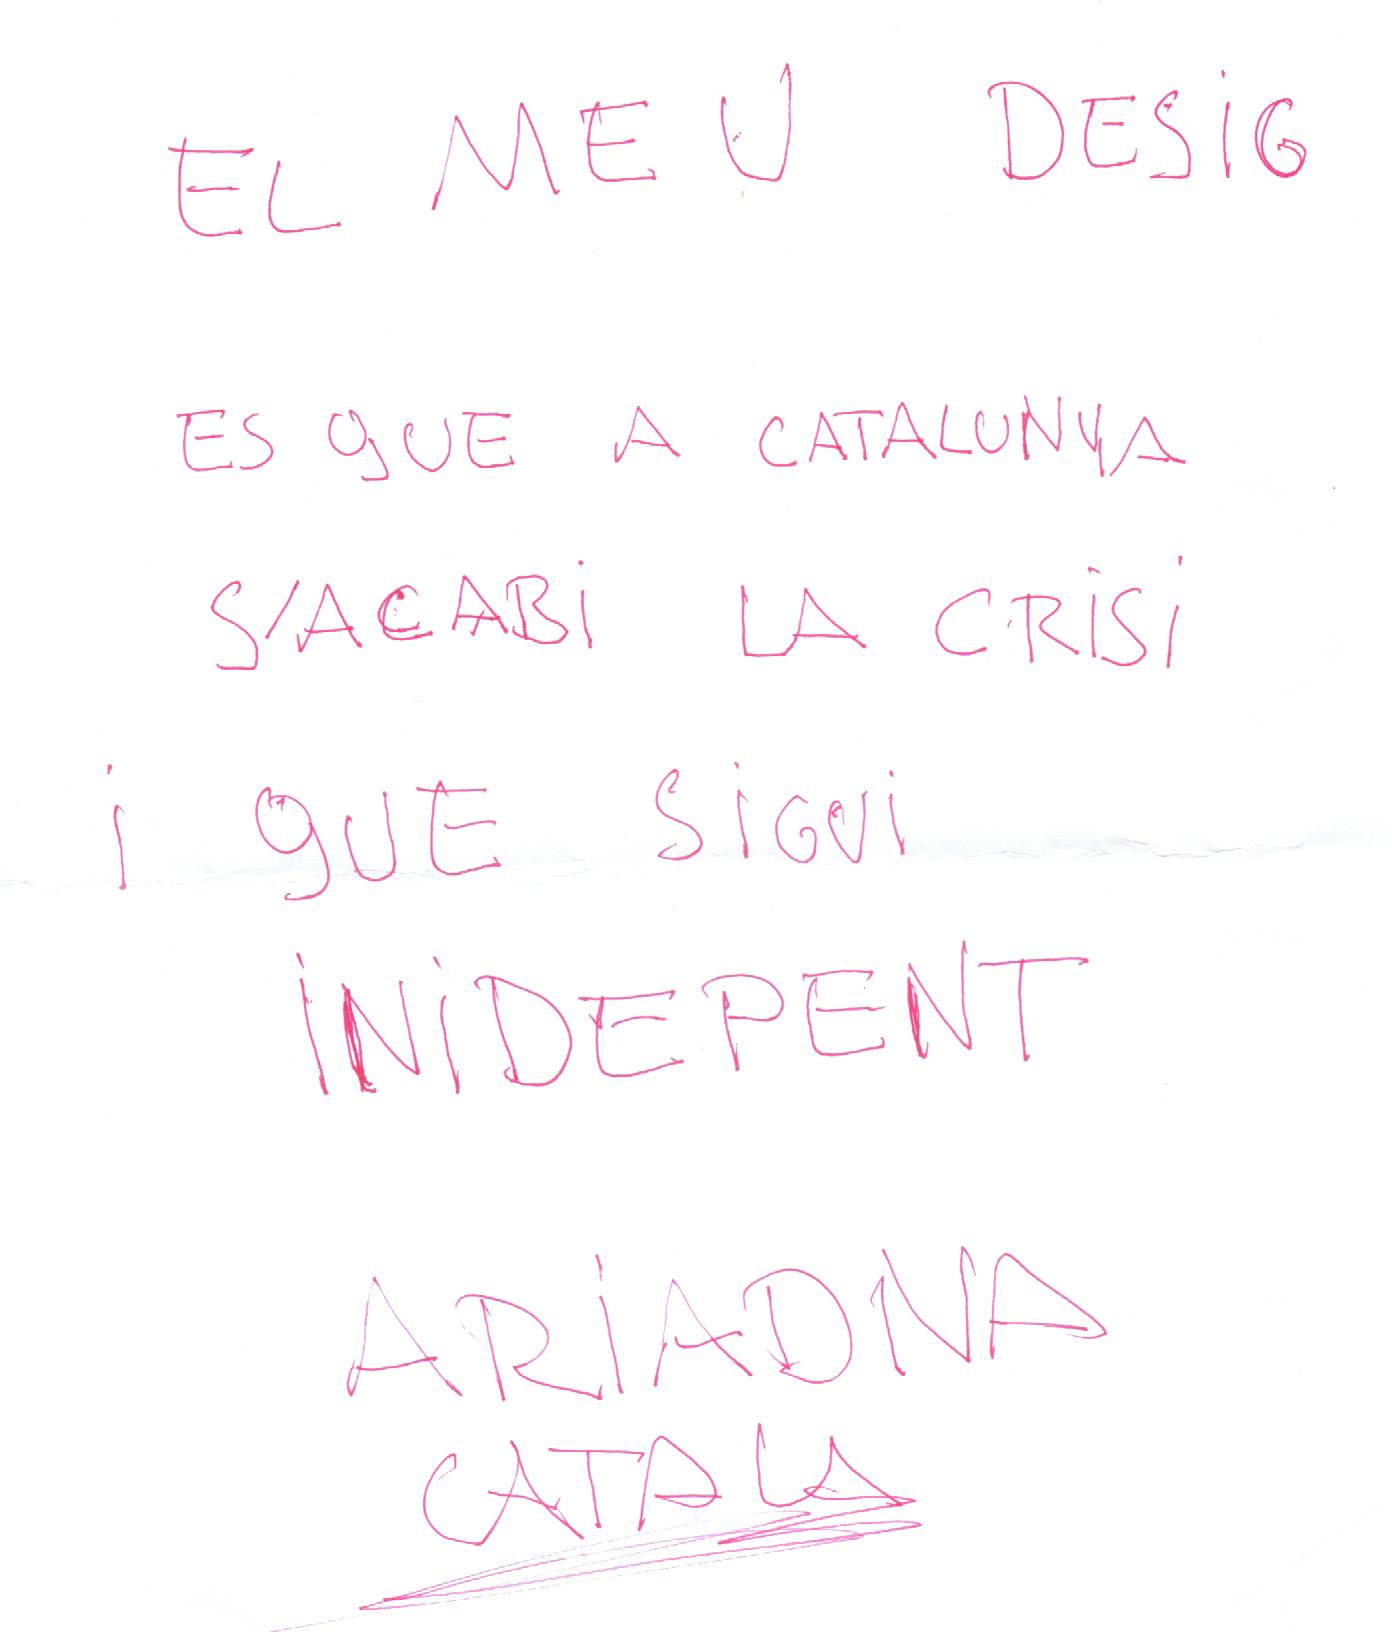 EL MEU DESIG
ES QUE A CATALUNYA
S'ACABI LA CRISI
i QUE SIGUI
INIDEPENT
ARIADNA
CATALA